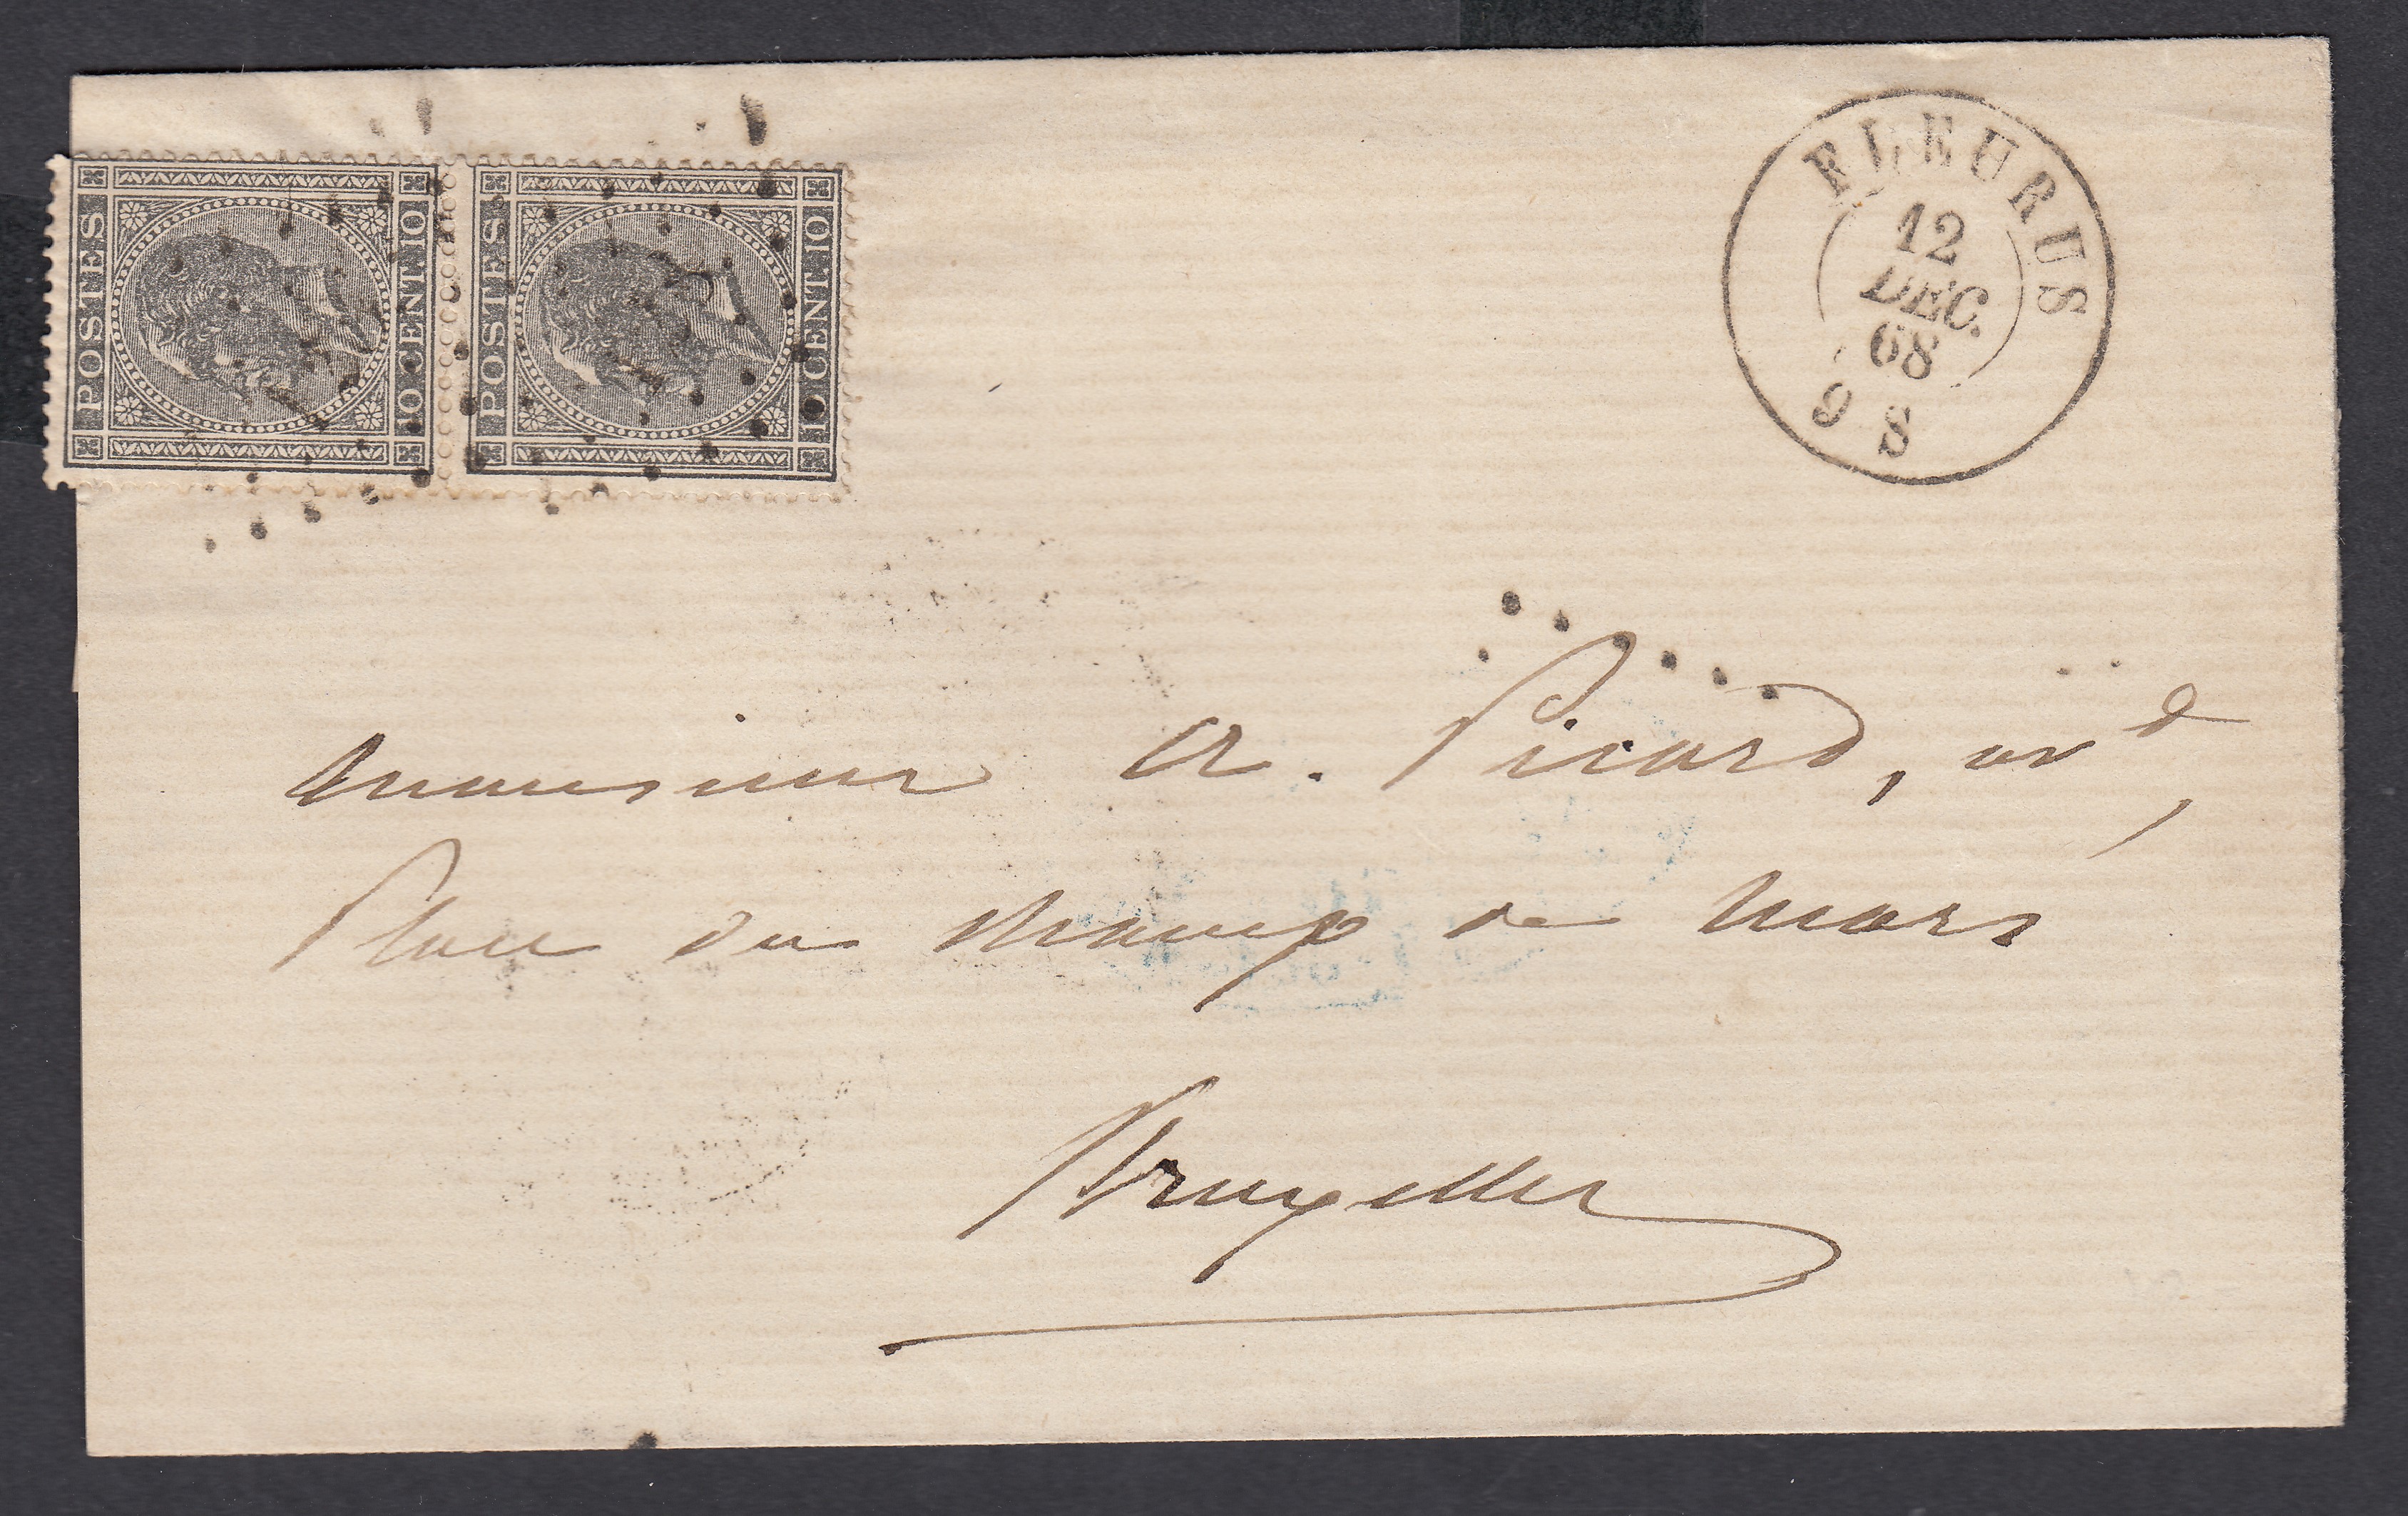 POSTES
10 CENT. 10
POSTES
10 CENT. 10
FLEURUS
12
DEC.
68
9 S
Monsieur A. Picard, av
Place du Champ de Mars
Bruxelles